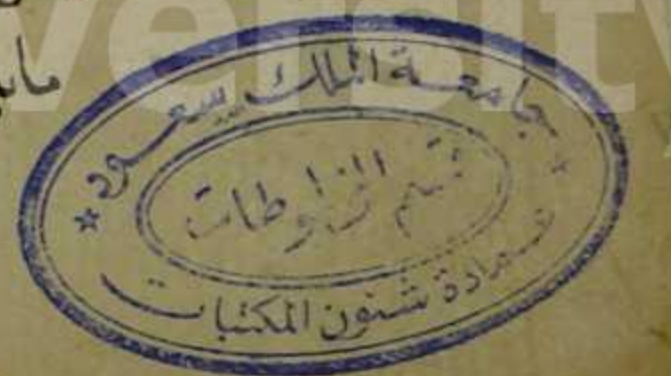 versity
جامعة الملك سعود
قسم المخطوطات
عمادة شئون المكتبات